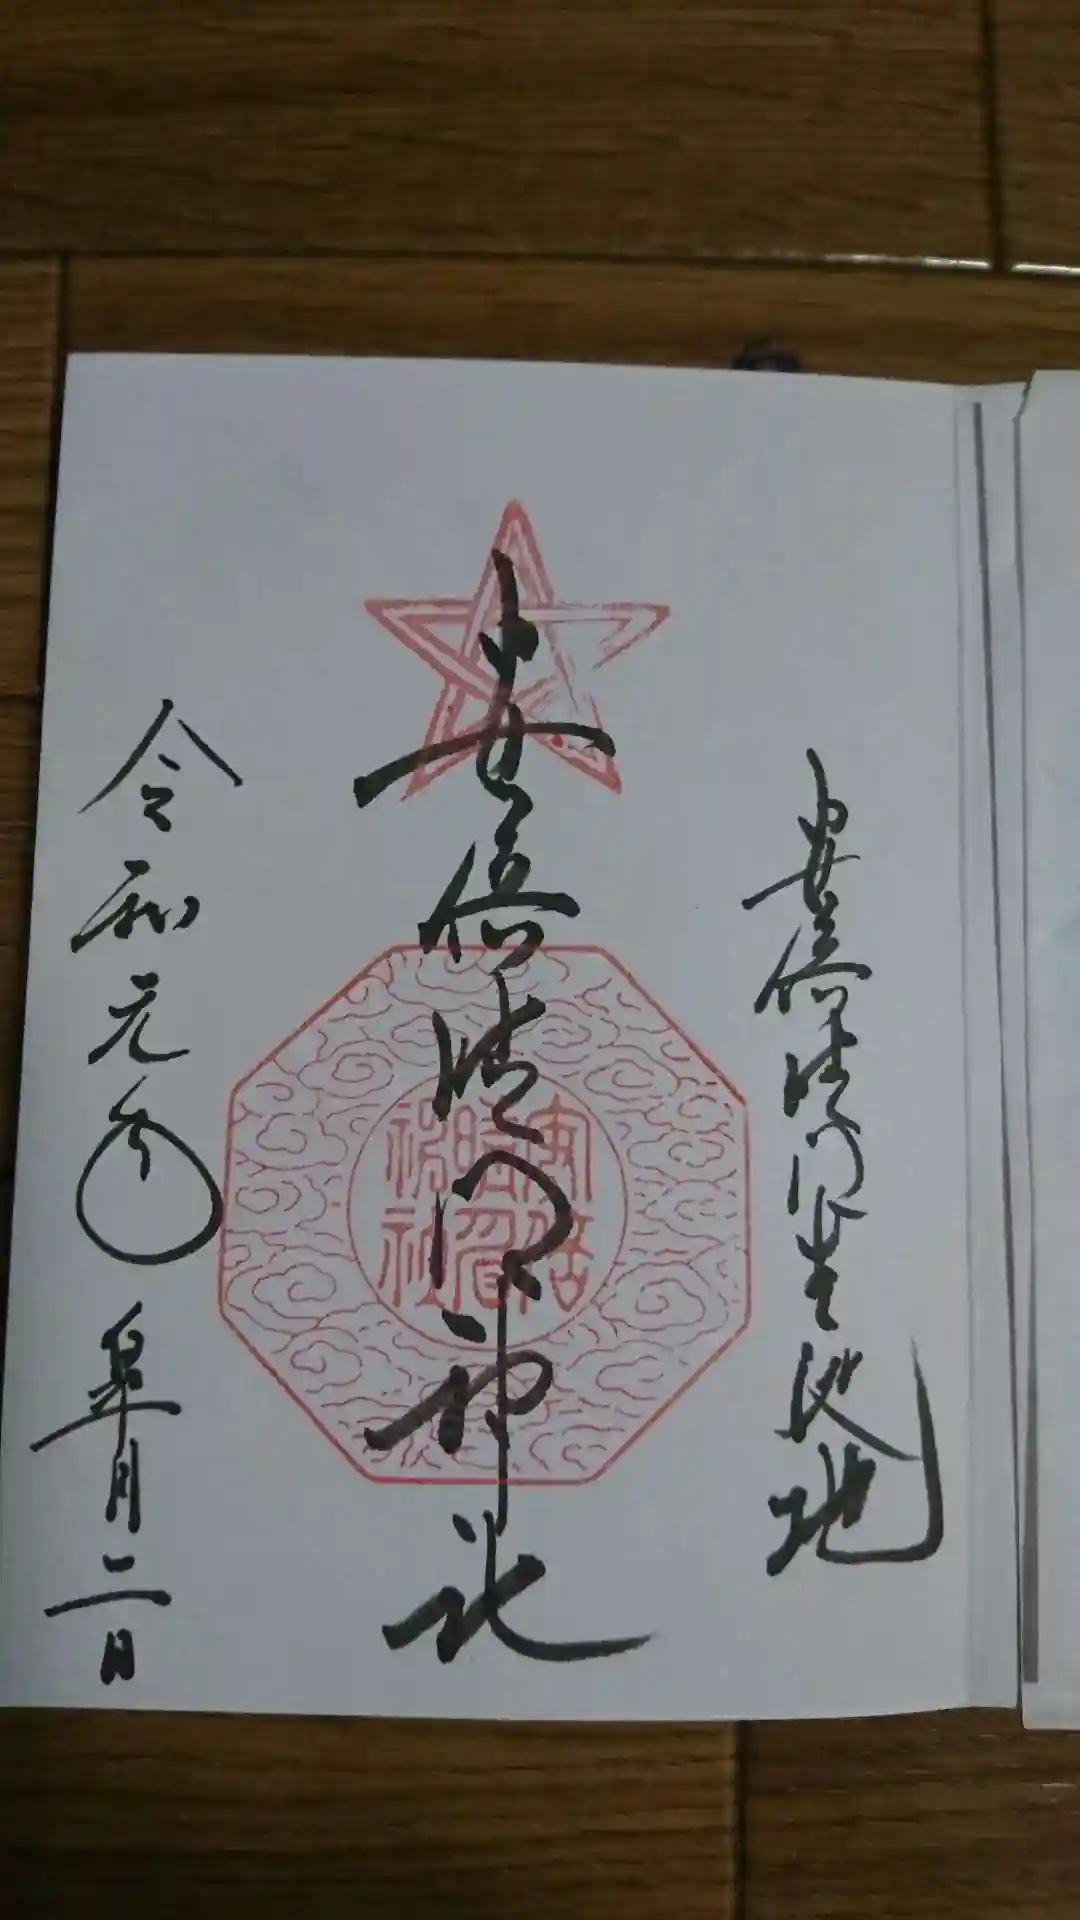 安倍晴明生誕地
安倍晴明神社
安倍
晴明
神社
令和元年皐月二日